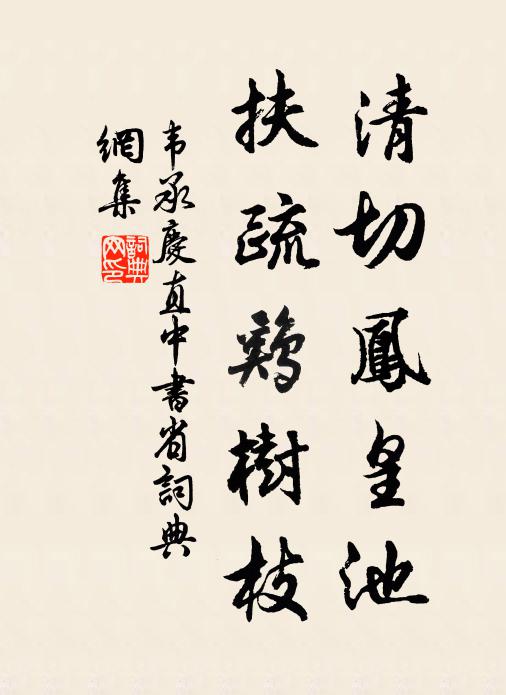 清切鳳皇池
扶疏鷄樹枝
韦承慶直中書省詞典
網集
詞典
网印